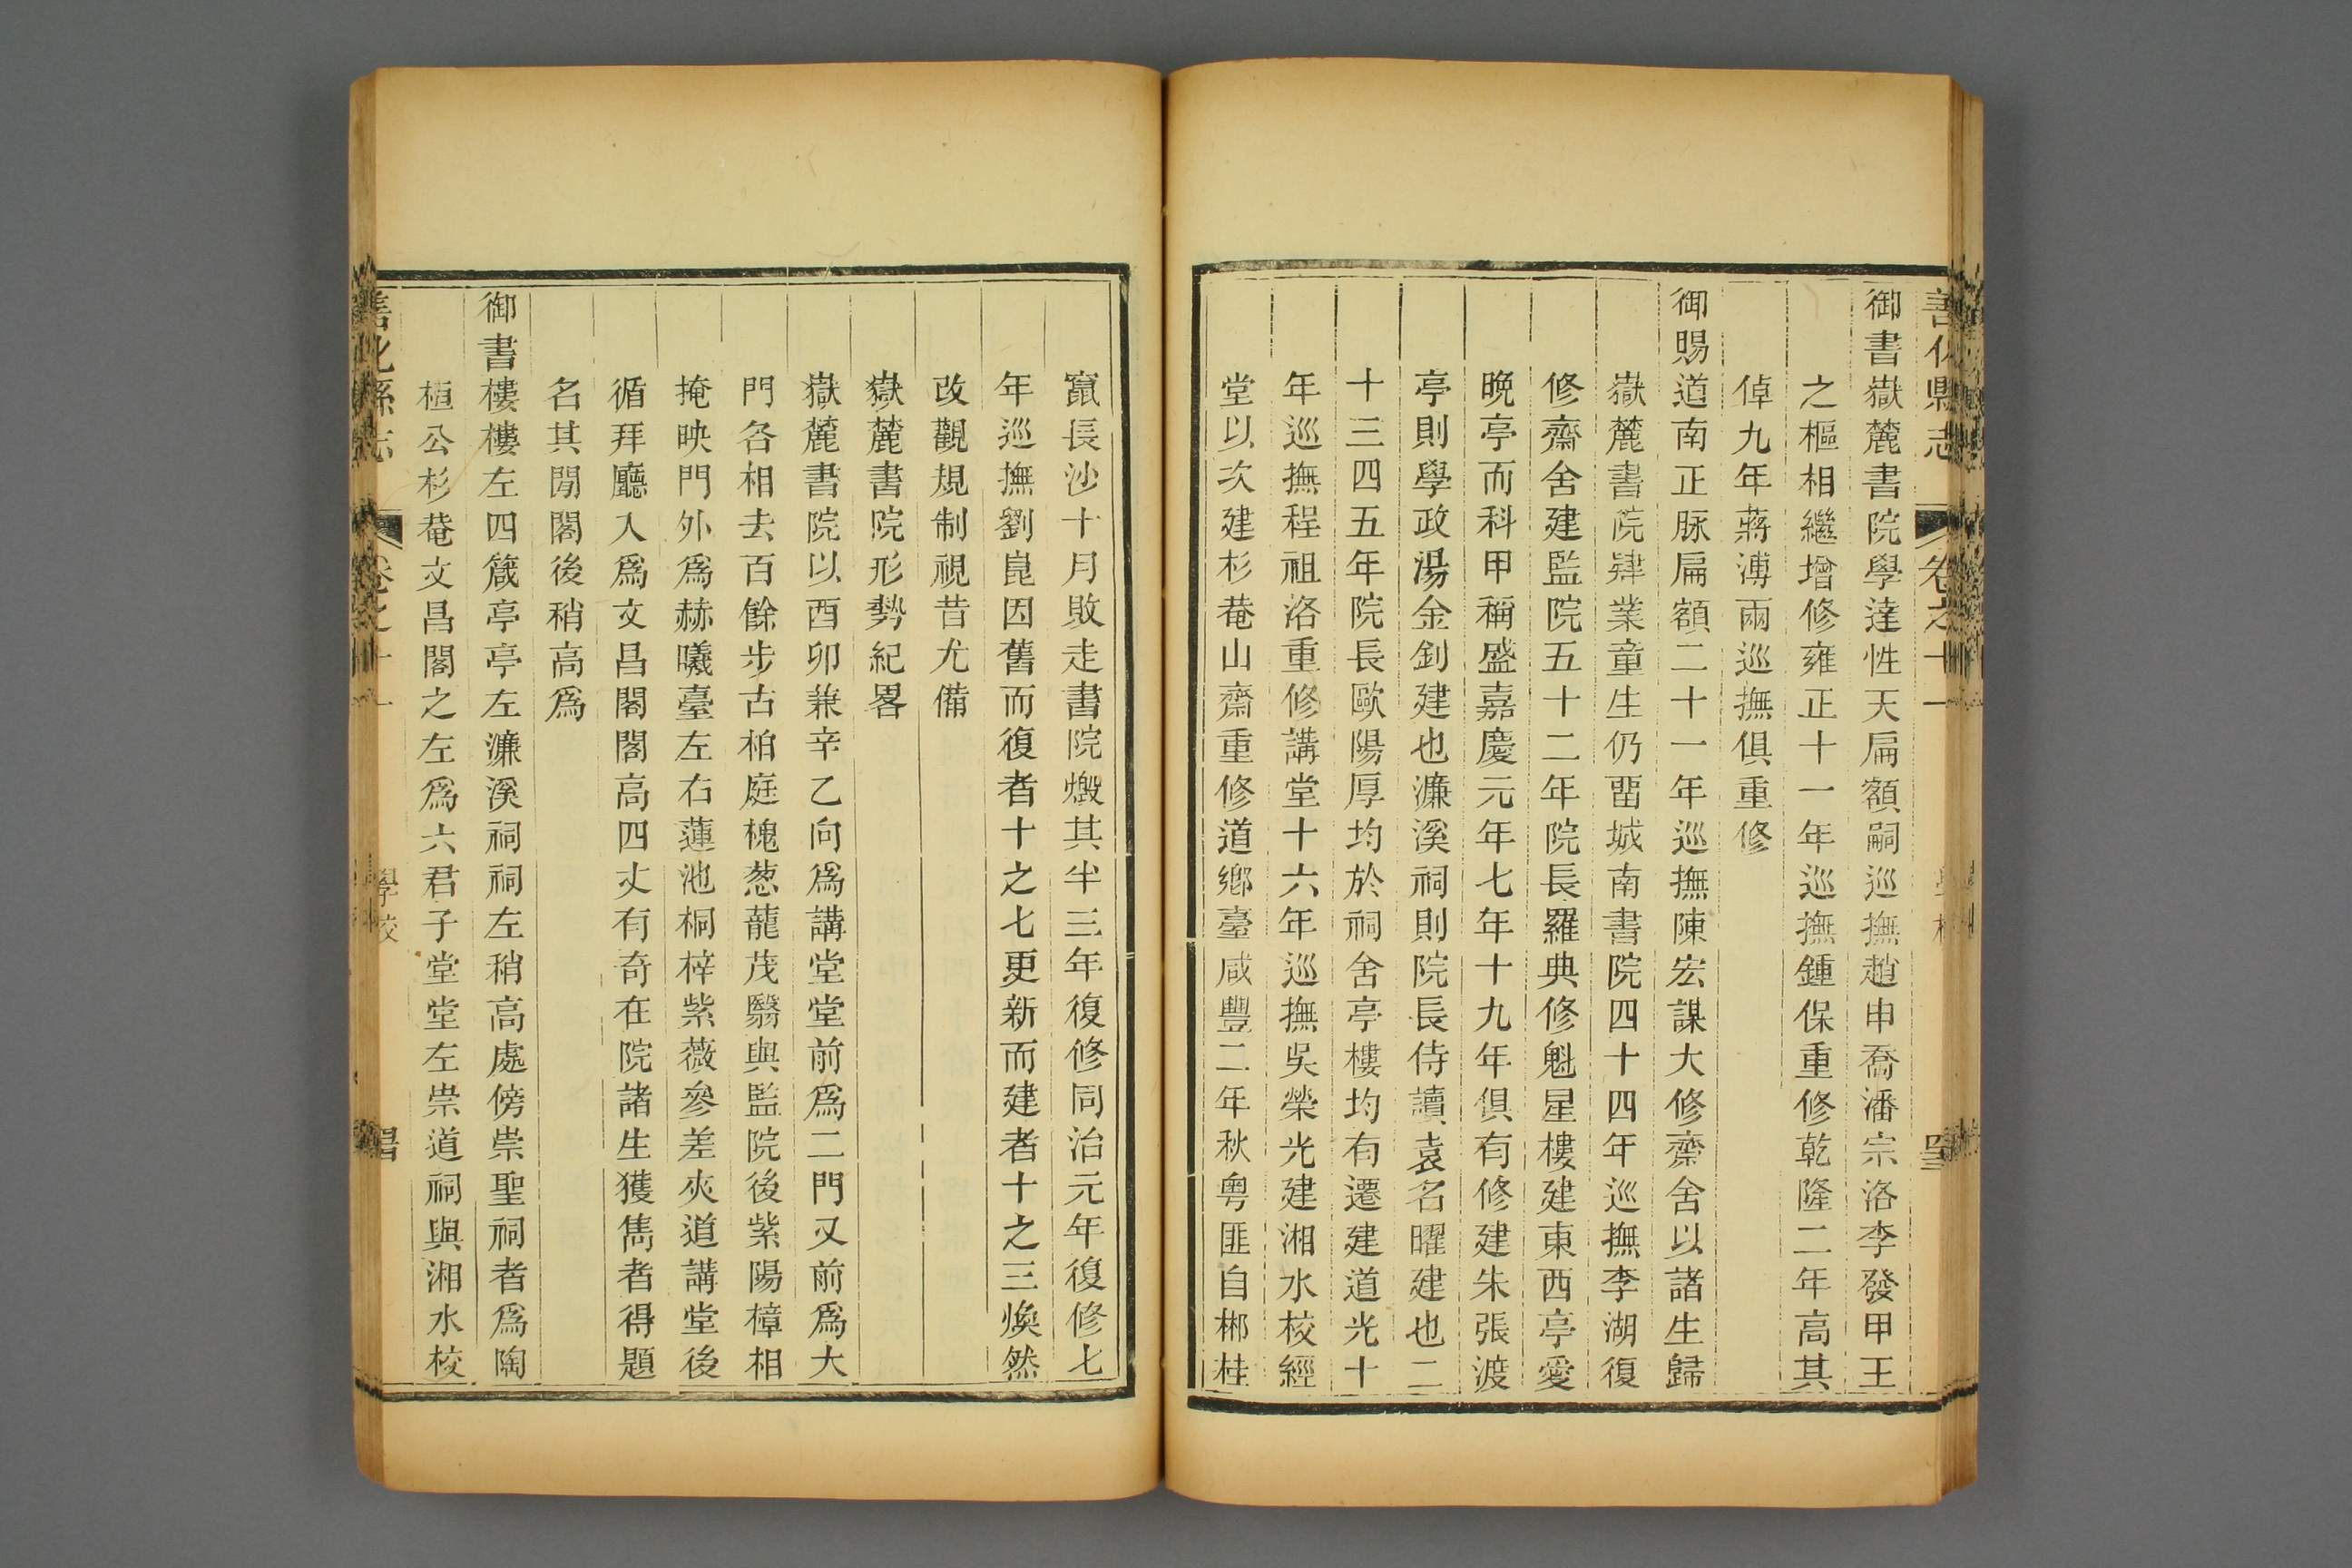 善化縣志 卷之十一 學校
御書嶽麓書院學達性天扁額嗣巡撫趙申喬潘宗洛李發甲王
之樞相繼增修雍正十一年巡撫鍾保重修乾隆二年高其
倬九年蔣溥兩巡撫俱重修
御賜道南正脉扁額二十一年巡撫陳宏謀大修齋舍以諸生歸
嶽麓書院肄業童生仍畱城南書院四十四年巡撫李湖復
修齋舍建監院五十二年院長羅典修魁星樓建東西亭愛
晚亭而科甲稱盛嘉慶元年七年十九年俱有修建朱張渡
亭則學政湯金釗建也濂溪祠則院長侍讀袁名曜建也二
十三四五年院長歐陽厚均於祠舍亭樓均有遷建道光十
年巡撫程祖洛重修講堂十六年巡撫吳榮光建湘水校經
堂以次建杉菴山齋重修道鄉臺咸豐二年秋粵匪自郴桂
竄長沙十月敗走書院燬其半三年復修同治元年復修七
年巡撫劉崑因舊而復者十之七更新而建者十之三煥然
改觀規制視昔尤備
嶽麓書院形勢紀畧
嶽麓書院以酉卯兼辛乙向爲講堂堂前爲二門又前爲大
門各相去百餘步古柏庭槐葱蘢茂翳與監院後紫陽樟相
掩映門外爲赫曦臺左右蓮池桐梓紫薇參差夾道講堂後
循拜廳入爲文昌閣閣高四丈有奇在院諸生獲雋者得題
名其閒閣後稍高爲
御書樓樓左四箴亭亭左濂溪祠祠左稍高處傍崇聖祠者爲陶
桓公杉菴文昌閣之左爲六君子堂堂左崇道祠與湘水校
善化縣志 卷之十一 學校